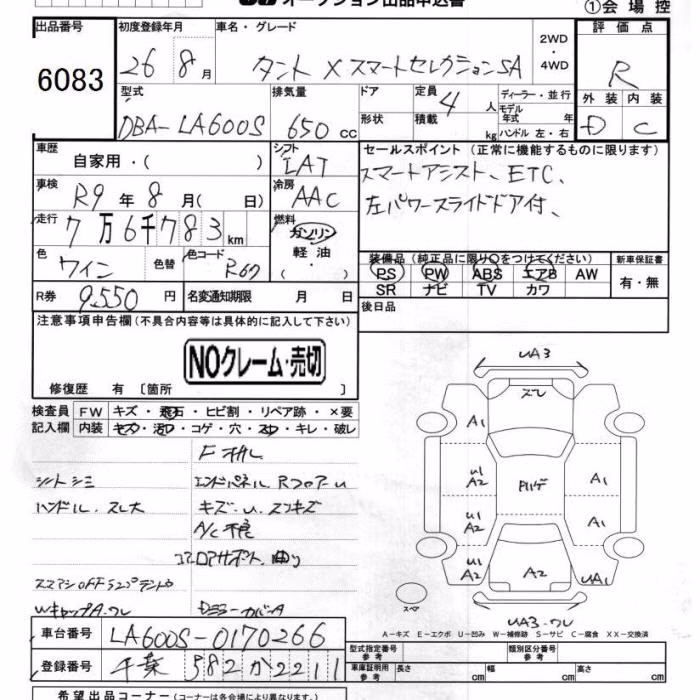 オークション出品申込書
①会場控
出品番号 初度登録年月 車名・グレード 評価点
6083 26 8月 タント X スマートセレクションSA 2WD・4WD R
型式 排気量 ドア 定員 4人 ディーラー・並行 外装 内装
DBA-LA600S 650cc 形状 積載 kg モデル年式 年 ハンドル 左・右 D C
車歴 自家用・( ) シフト IAT セールスポイント (正常に機能するものに限ります)
車検 R9年8月( 日) 冷房 AAC スマートアシスト、ETC、
左パワースライドドア付、
走行 7万6千783km 燃料 ガソリン 軽油・( )
色 ワイン 色替 色コード R67
装備品 (純正品に限り○をつけてください) 新車保証書
PS PW ABS エアB AW 有・無
SR ナビ TV カワ
R券 9,550円 名変通知期限 月 日
後日品
注意事項申告欄 (不具合内容等は具体的に記入して下さい)
NOクレーム・売切
修復歴 有 〔箇所 〕
検査員 FW キズ・飛石・ヒビ割・リペア跡・×要
記入欄 内装 キズ・汚レ・コゲ・穴・スレ・キレ・破レ
シートシミ エンドパネル RフロアーU
ハンドル、スレ大 キズ・U、スンキズ
A/C不良
コアロアサポート、曲り
WキャップA、ワレ
UA3
スレ
A1
U1
A2
A1
U1
A2
A1
U1
A2
A2
UA1
スペア
UA3ワレ
A-キズ E-エクボ U-凹み W-補修跡 S-サビ C-腐食 XX-交換済
車台番号 LA600S-0170266
登録番号 千葉 582 か 2211
型式指定番号 参考 類別区分番号 参考
車庫証明用 参考 長さ cm 幅 cm 高さ cm
希望出品コーナー (コーナーは各会場により異なります。)